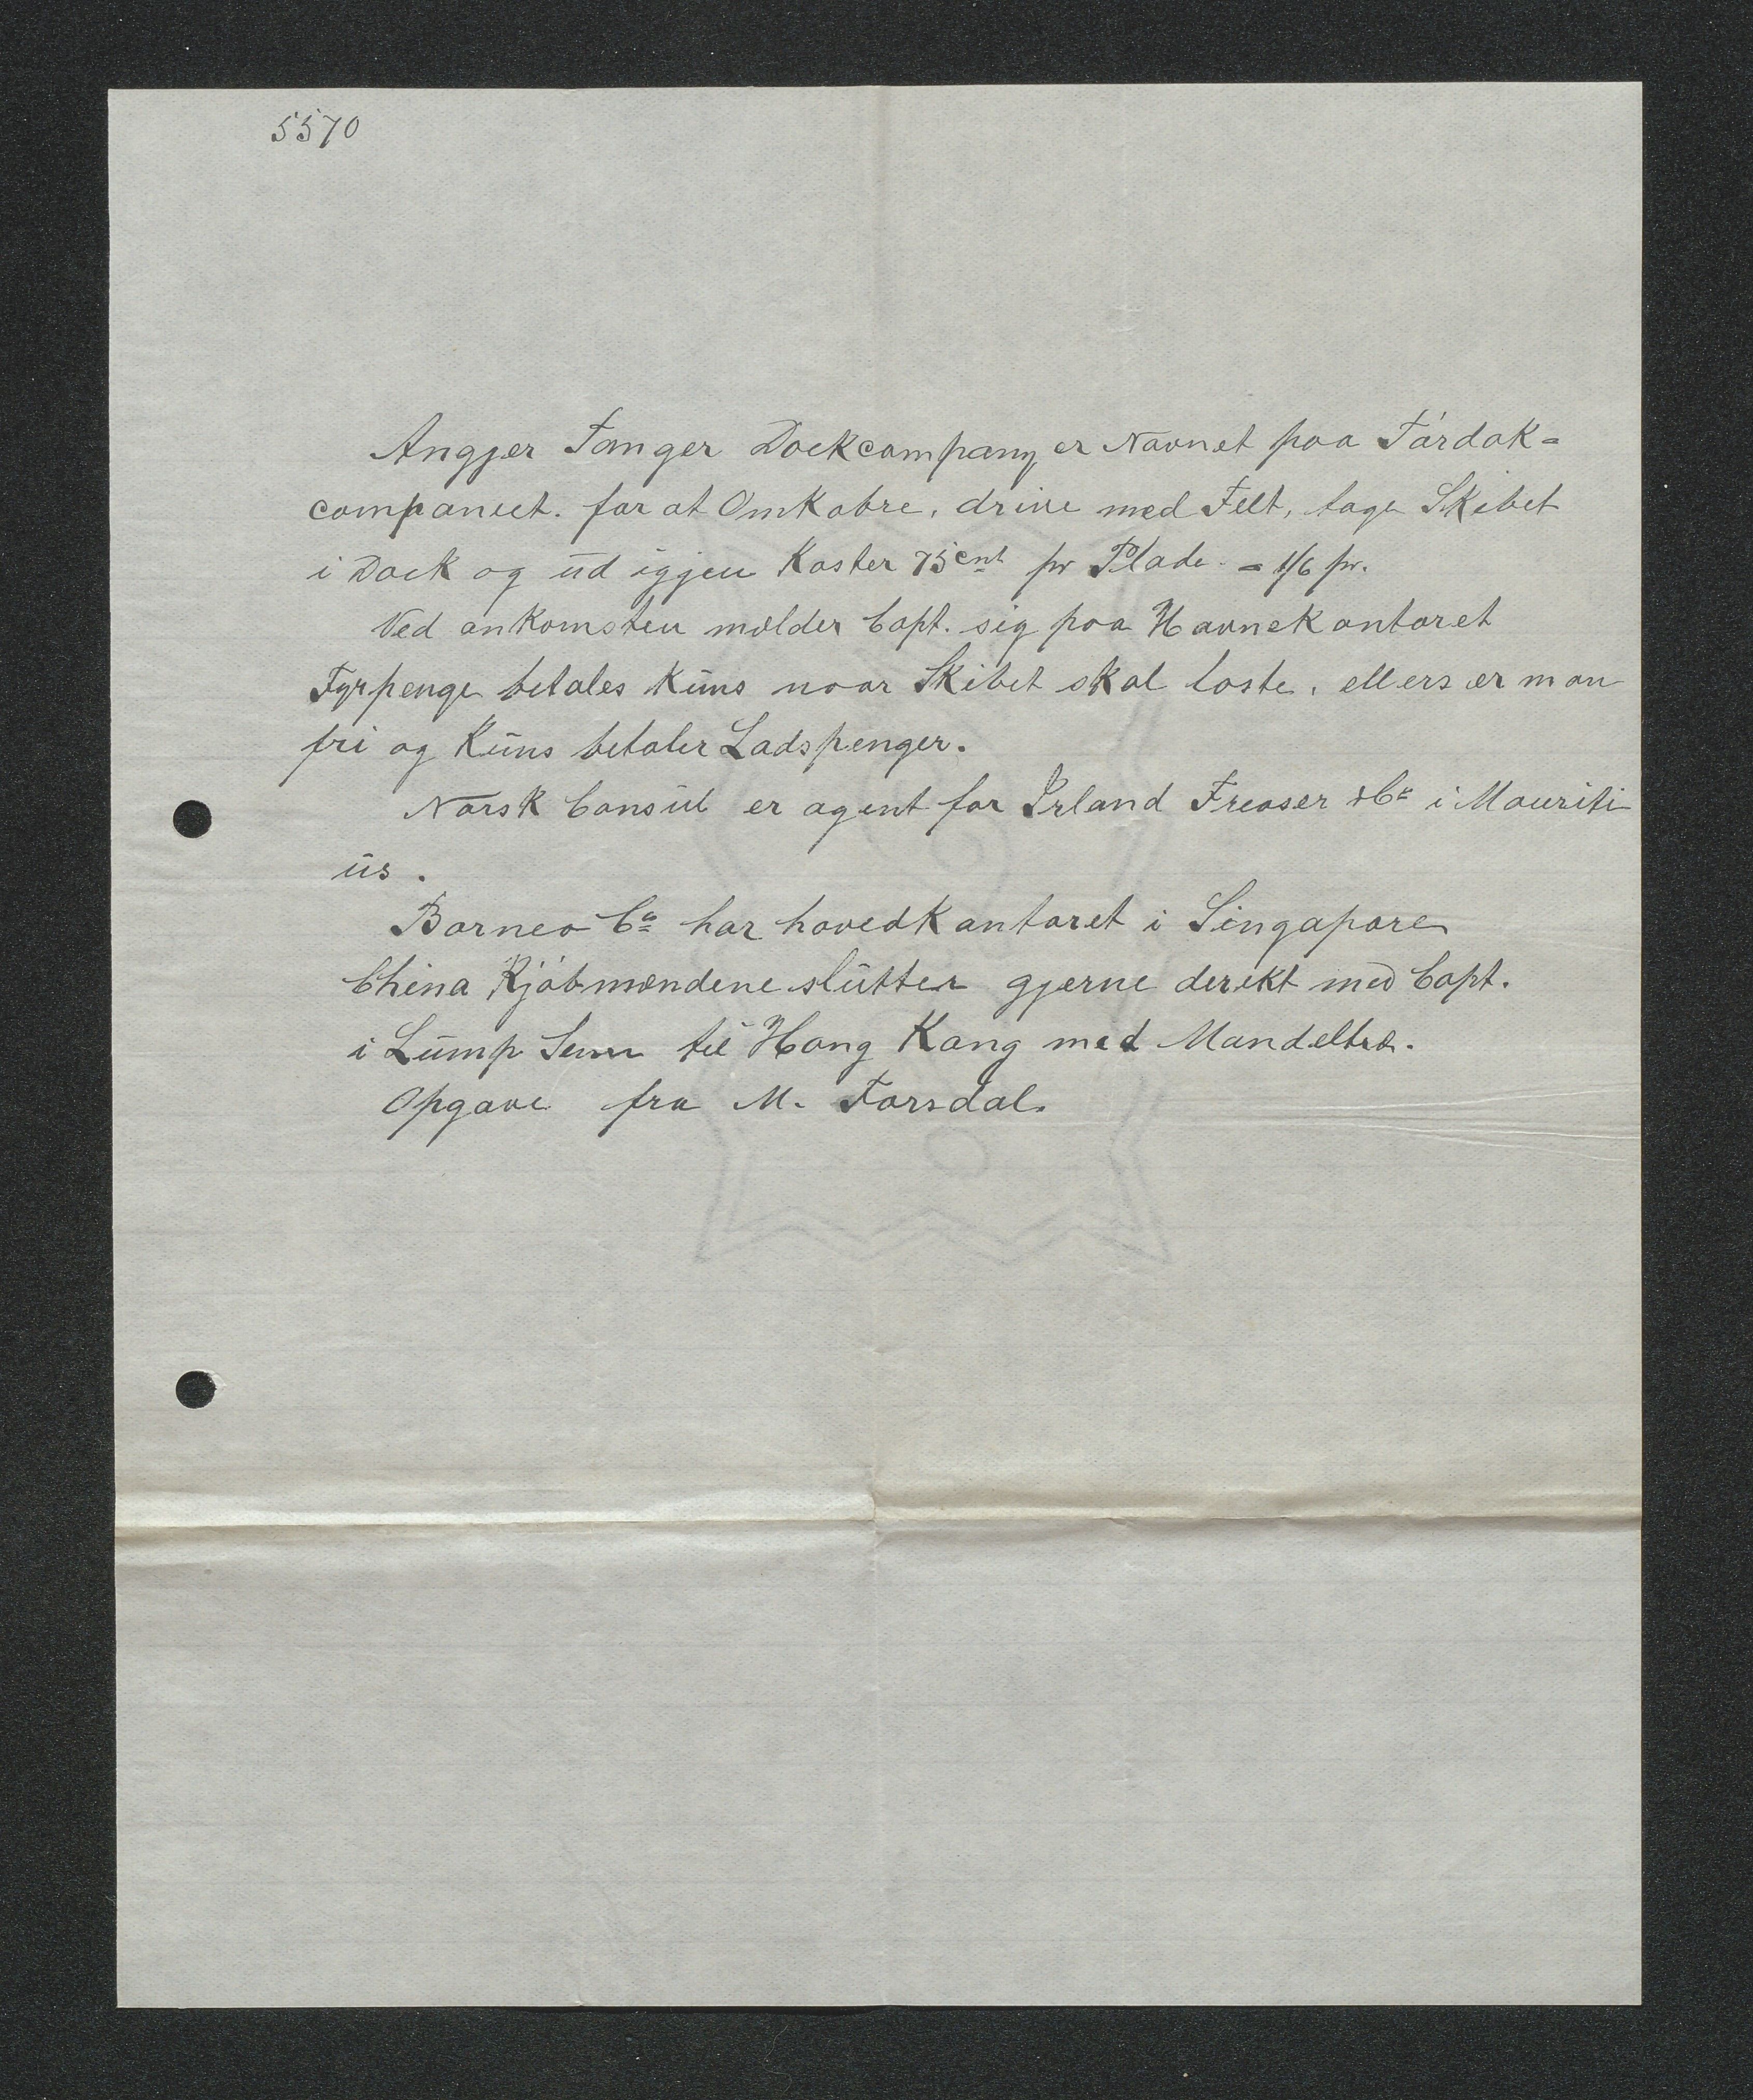 5570
Angjer Tanger Dockcompany er Navnet paa Tórdok=
companiet. for at Omkobre, drive med Felt, tage Skibet
i Dock og ud igjen koster 75 cnt pr Plade. = 1/6 pr.
Ved ankomsten mælder Capt. sig paa Havnekontoret
Fyrpenge betales kuns naar Skibet skal loste, ellers er man
fri og kuns betaler Ladspenger.
Norsk Consul er agent for Irland Freaser & Co i Mauriti
us.
Borneo Co har hovedkontoret i Singapore
China Kjóbmændene slutter gjerne derekt med Capt.
i Lump Sum til Hong Kong med Mandeltræ.
Opgave fra M. Forsdal.